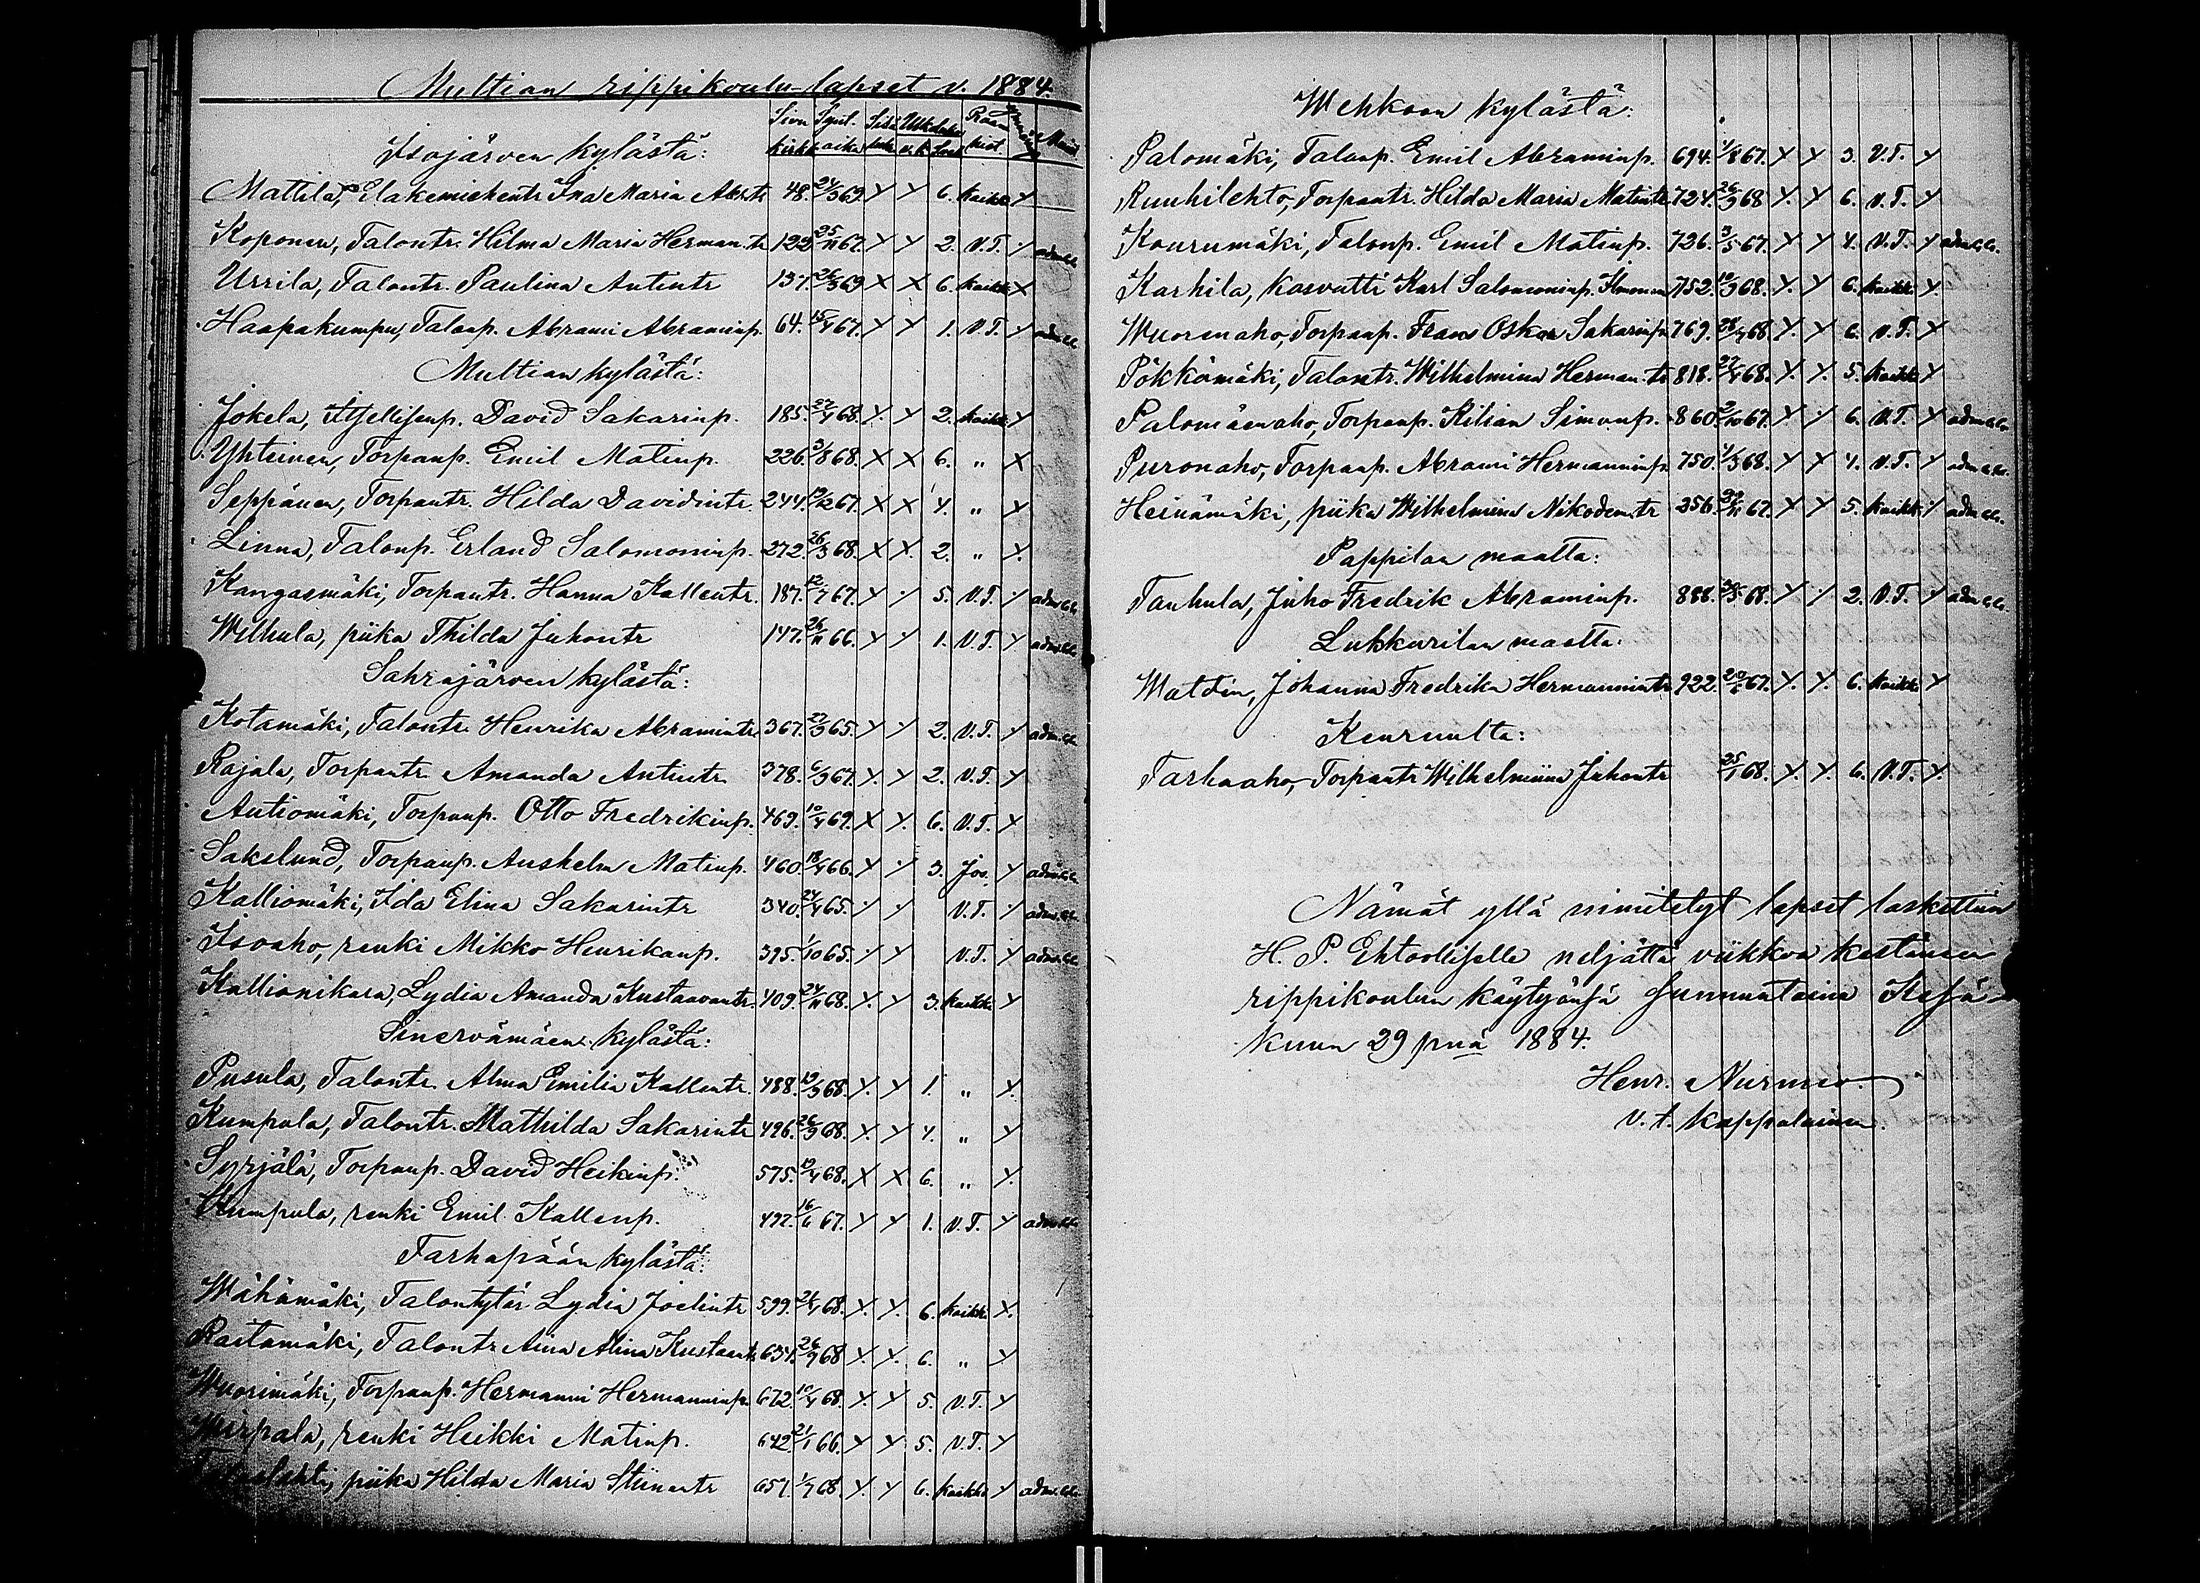 Multian rippikoulu lapset v. 1884.
Sivu kirkk. Synt. aika Sisä luku Ulkoluku v.k. Raam. hist.
Isojärven kylästä:
Mattila, Eläkemiehentr Ina Maria Abr.tr 48. 24/3 69 x x 6. kaikki x
Koponen, Talontr. Hilma Maria Herman.tr 122. 25/11 67. x x 2. V.T. x adm.
Urrila, Talontr. Paulina Antintr 137. 26/3 69 x x 6. kaikki x
Haapakumpu, Talonp. Abrami Abraminp. 64. 15/4 67. x x 1. V.T. x adm.
Multian kylästä:
Jokela, Itsellisenp. David Sakarinp. 185. 27/1 68. x x 2. kaikki x
Yhteinen, Torpanp. Emil Matinp. 226. 3/8 68. x x 6. " x
Seppänen, Torpantr. Hilda Davidintr. 244. 19/2 67. x x 4. " x
Linna, Talonp. Erland Salomoninp. 272. 26/3 68. x x. 2. " x.
Kangasmäki, Torpantr. Hanna Kallentr. 187. 12/7 67. x x 5. V.T. x adm.
Wilhula, piika Thilda Juhontr 147. 26/11 66. x x 1. V.T. x adm.
Sahrajärven kylästä:
Kotamäki, Talontr. Henrika Abramintr 367. 27/3 65. x x 2. V.T. x adm.
Rajala, Torpantr. Amanda Antintr 378. 6/3 67. x. x 2. V.T. x
Autiomäki, Torpanp. Otto Fredrikinp. 469. 10/4 69. x x. 6. V.T. x
Sakslund, Torpanp. Anshelm Matinp. 460. 18/4 66. x x 3. Jos. x adm.
Kalliomäki, Ida Elina Sakarintr 340. 24/4 65. x x V.T. x adm.
Isoaho, renki Mikko Henrikanp. 395. 1/10 65. x x V.T. x adm.
Kallionikara, Lydia Amanda Kustaavantr. 409. 24/11 68. x. x 3. kaikki x
Sinervämäen kylästä:
Pusula, Talontr. Alma Emilia Kallentr. 488. 19/3 68. x. x 1. " x.
Kumpula, Talontr. Mathilda Sakarintr 496. 26/9 68. x. x 4. " x
Syrjälä, Torpanp. David Heikinp. 575. 19/4 68. x x 6. " x.
Kumpula, renki Emil Kallenp. 492. 16/6 67. x x 1. V.T. x adm.
Tarhapään kylästä:
Wähämäki, Talontytär Lydia Joelintr 599. 24/4 68. x. x. 6. kaikki x.
Rastamäki, Talontr Aina Alina Kustaantr 634. 26/9 68 x. x. 6. " x
Wuorimäki, Torpanp. Hermanni Hermanninp. 672. 10/4 68. x. x 5. V.T. x
renki Heikki Matinp. 642. 21/1 66. x x 5. V.T. x
piika Hilda Maria Stiinantr 657. 1/7 68. x. x 6. kaikki x adm.
Wehkoon kylästä:
Palomäki, Talonp. Emil Abraminp. 694. 1/8 67. x x 3. V.T. x
Ruuhilehto, Torpantr. Hilda Maria Matintr 724. 26/9 68 x. x 6. V.T. x
Kourumäki, Talonp. Emil Matinp. 726. 3/5 67. x x 4. V.T. x adm.
Karhila, kasvatti Karl Salomoninp. 752. 10/9 68. x. x 6. kaikki x.
Wuorenaho, Torpanp. Frans Oskar Sakarinp. 769. 28/7 68 x. x 6. V.T. x
Pökkömäki, Talontr. Wilhelmina Herman.tr 818. 27/4 68. x. x. 5. kaikki x
Palomäenaho, Torpanp. Kilian Simonp. 860. 2/10 67. x x 6. V.T. x adm.
Puronaho, Torpanp. Abrami Hermanninp. 750. 1/3 68. x x 4. V.T. x adm.
Heinämäki, piika Wilhelmina Nikodem.tr 256. 29/11 67. x x 5. kaikki x adm.
Pappilan maalta:
Tauhula, Juho Fredrik Abraminp. 888. 28/5 68. x x 2. V.T. x adm.
Lukkarilan maalta:
Waldin, Johanna Fredrika Hermannintr 922. 20/6 67. x. x. 6. kaikki x
Keuruulta:
Tarhaaho, Torpantr Wilhelmiina Juhontr 25/1 68. x. x. 6. V.T. x.
Nämät yllä nimitetyt lapset laskettiin
H. P. Ehtoolliselle neljättä viikkoa kestäneen
rippikoulun käytyänsä sunnuntaina Kesä-
kuun 29 pnä 1884.
Henr. Nurmio
v. t. kappalainen.